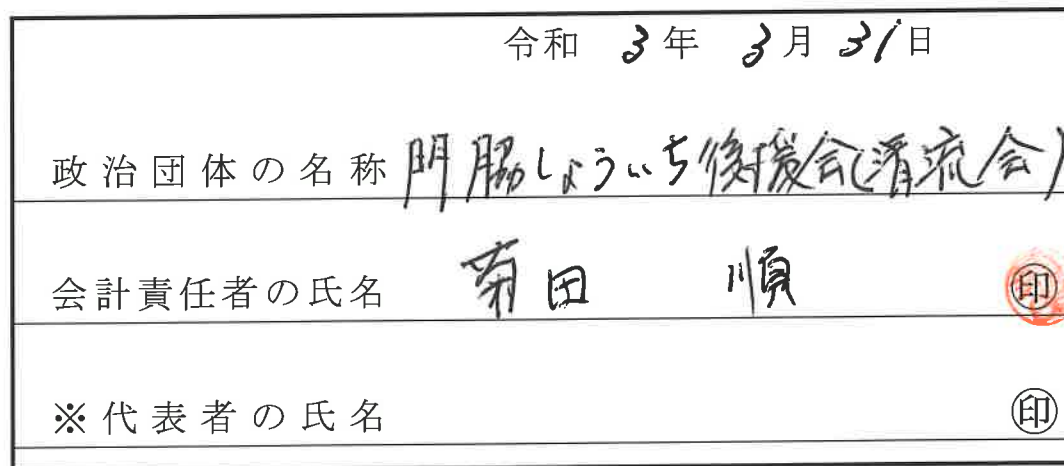 令和 3年 3月 31日
政治団体の名称 門脇しょういち後援会(清流会)
会計責任者の氏名 菊田 順 ㊞
※代表者の氏名 ㊞